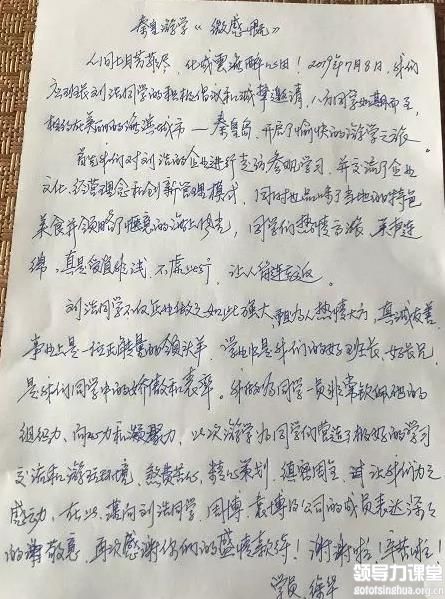 秦皇游学《微感慨》
人间七月芳菲尽，化城云海醉心田！2019年7月8日，我们
应班长刘浩同学的积极倡议和诚挚邀请，八方同学如期而至，
相约在美丽的海滨城市—秦皇岛，开启了愉快的游学之旅。
首先我们对刘浩的企业进行走访参观学习，并交流了企业
文化、经营理念和创新管理模式，同时也品味了当地的特色
美食并领略了惬意的海上修光，同学们热情高涨，美声连
绵，真是受益非浅，不虚此行，让人留连忘返。
刘浩同学不仅企业做之如此强大，且为人热情大方，真诚友善
事业上是一位正能量的领头羊，学业中是我们的好班长、好长兄，
是我们同学中的骄傲和表率。我做为同学一员非常钦佩他的
组织力、向心力和凝聚力，此次游学为同学们营造了极好的学习
交流和游玩环境，煞费苦心，精心策划，缜密周全，甚让我们为之
感动，在此谨向刘浩同学、周博、袁博及公司的成员表达深深
的尊敬意，再次感谢你们的盛情款待！谢谢啦！辛苦啦！
学员 徐华
领导力课堂
gototsinghua.org.cn